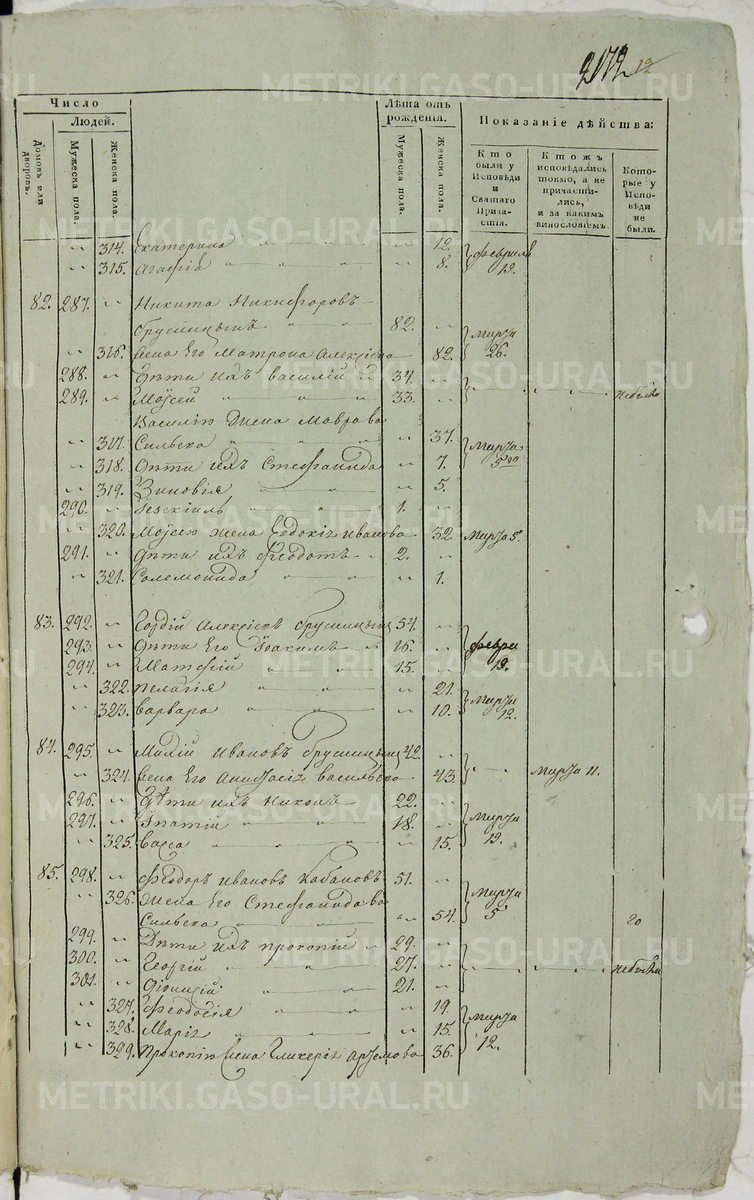 METRIKI.GASO-URAL.RU
12
Число
Людей.
Домовъ или дворовъ.
Мужеска пола.
Женска пола.
Лѣта отъ рожденія.
Мужеска пола.
Женска пола.
Показаніе дѣйства:
Кто были у Исповѣди и Святаго Причастія.
Ктожъ исповѣдались токмо, а не причастились, и за какимъ винословіемъ.
Которые у Исповѣди не были.
314. Екатерина 12. февраля
315. Агафія 8. 19.
82. 287. Никита Никифоровъ
Брусницынъ 82. Марта
316. Жена Его Матрона Алексіева 82. 26.
288. Дѣти ихъ Василій 34.
289. Моѵсей 33. небыли
Василію Жена Мавра Ва
317. Сильева 37. Марта
318. Дѣти ихъ Стефанида 7. 5го
319. Зиновія 5.
290. Іезекіиль 1.
320. Моѵсею жена Евдокія Иванова 32. Марта 5.
291. Дѣти ихъ Феодотъ 2.
321. Соломонида 1.
83. 292. Гордій Алексіевъ Брусницынъ 54.
293. Дѣти Его Іоакимъ 16. февра
294. Матфій 15. 19.
322. Пелагія 21. Марта
323. Варвара 10. 12.
84. 295. Ивановъ Брусницынъ 42.
324. Жена Его Анастасія Васильева 43. Марта 11.
296. Дѣти ихъ Никонъ 22.
297. Игнатій 18. Марта
325. Васса 15. 19.
85. 298. Феодоръ Ивановъ Кабановъ 51.
326. Жена Его Стефанида Ва Марта
Сильева 54. 5
299. Дѣти ихъ Прокопій 29.
300. Георгій 27. небыли
301. Діонисій 21.
327. Феодосія 19. Марта
328. Марія 15.
329. Прокопію Жена Гликерія Артемова 36. 12.